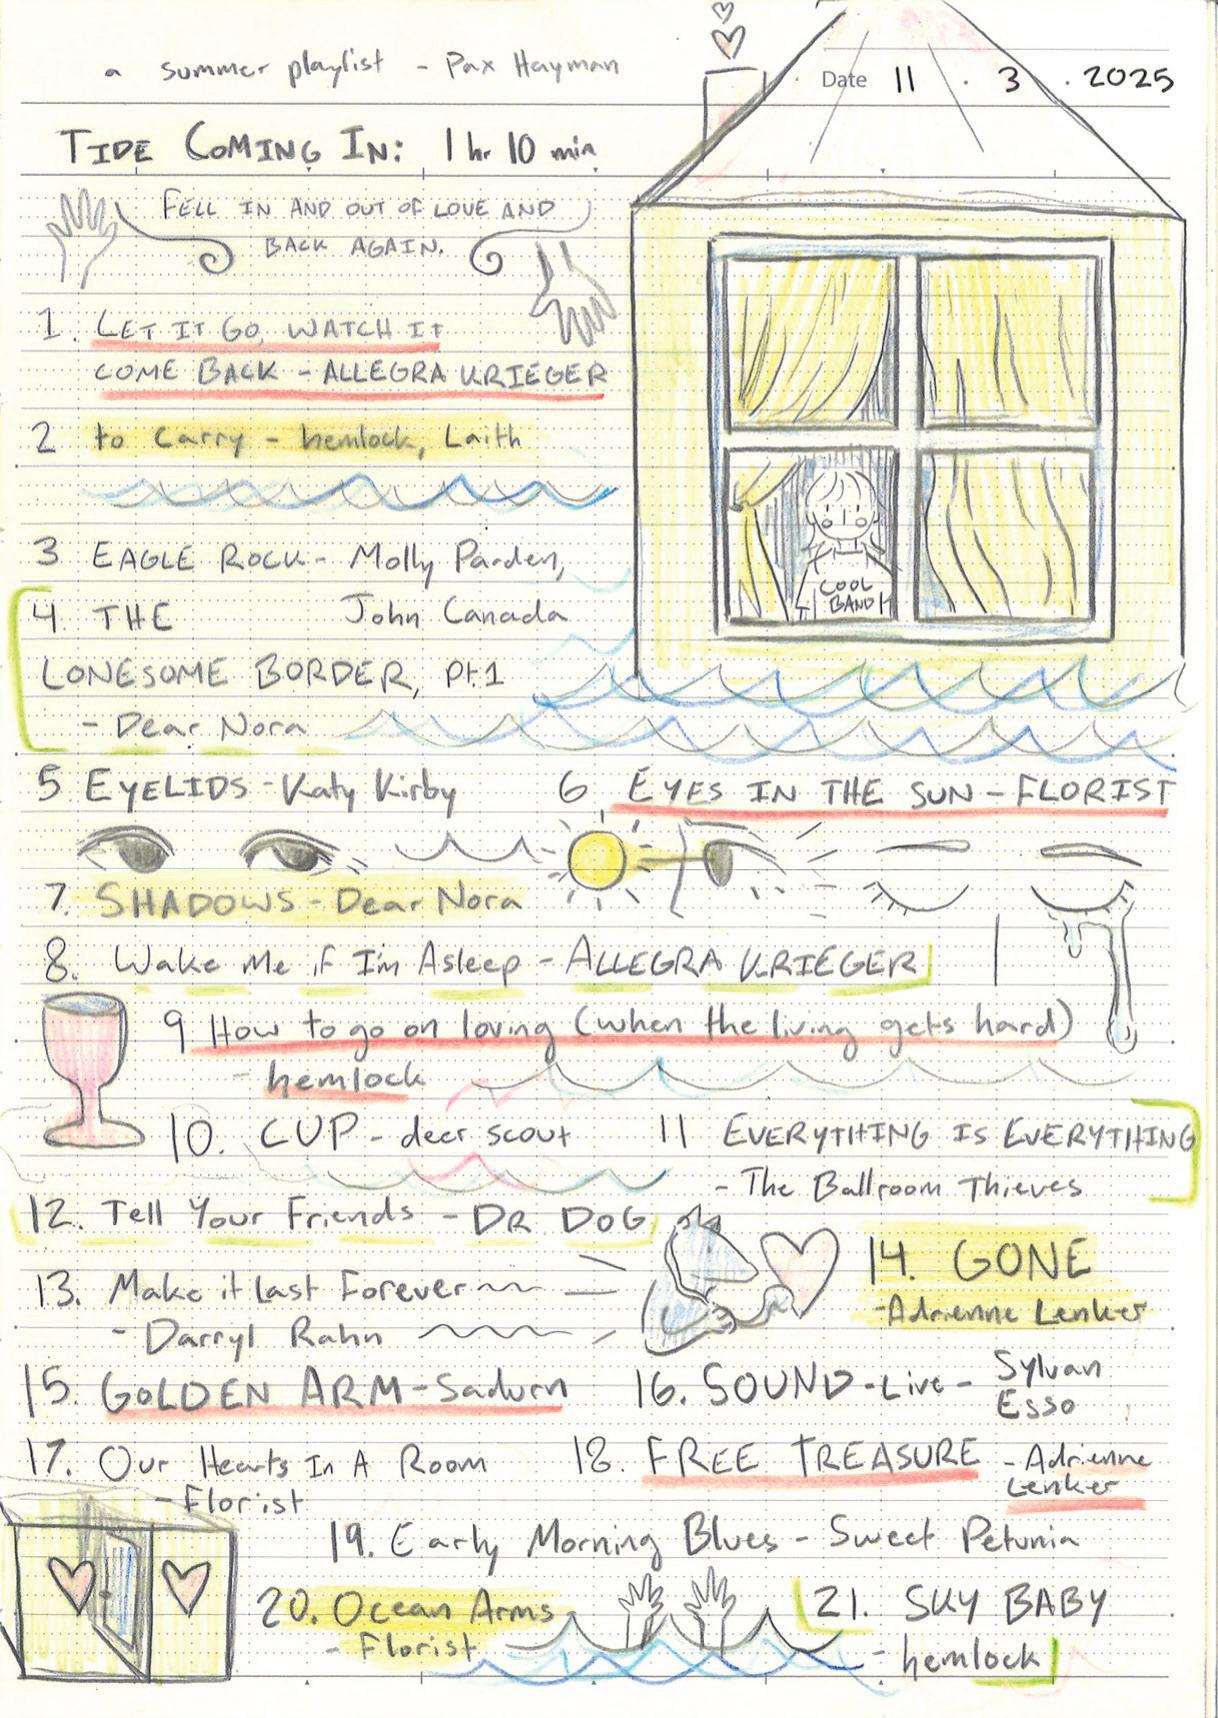 a summer playlist - Pax Hayman
Date 11 . 3 . 2025
TIDE COMING IN: 1 hr 10 min
FELL IN AND OUT OF LOVE AND
BACK AGAIN.
1. LET IT GO, WATCH IT
COME BACK - ALLEGRA KRIEGER
2 to Carry - hemlock, Laith
3 EAGLE ROCK - Molly Parden,
John Canada
COOL
BAND
4. THE
LONESOME BORDER, pt.1
- Dear Nora
5 EYELIDS - Katy Kirby
6 EYES IN THE SUN - FLORIST
7. SHADOWS - Dear Nora
8. Wake Me if I'm Asleep - ALLEGRA KRIEGER
9 How to go on loving (when the living gets hard)
- hemlock
10. CUP - deer scout
11 EVERYTHING IS EVERYTHING
- The Ballroom Thieves
12. Tell Your Friends - DR DOG
13. Make it Last Forever
- Darryl Rahn
14. GONE
- Adrienne Lenker
15. GOLDEN ARM - Sadurn
16. SOUND - Live - Sylvan
Esso
17. Our Hearts In A Room
- Florist
18. FREE TREASURE - Adrienne
Lenker
19. Early Morning Blues - Sweet Petunia
20. Ocean Arms
- Florist
21. SKY BABY
- hemlock